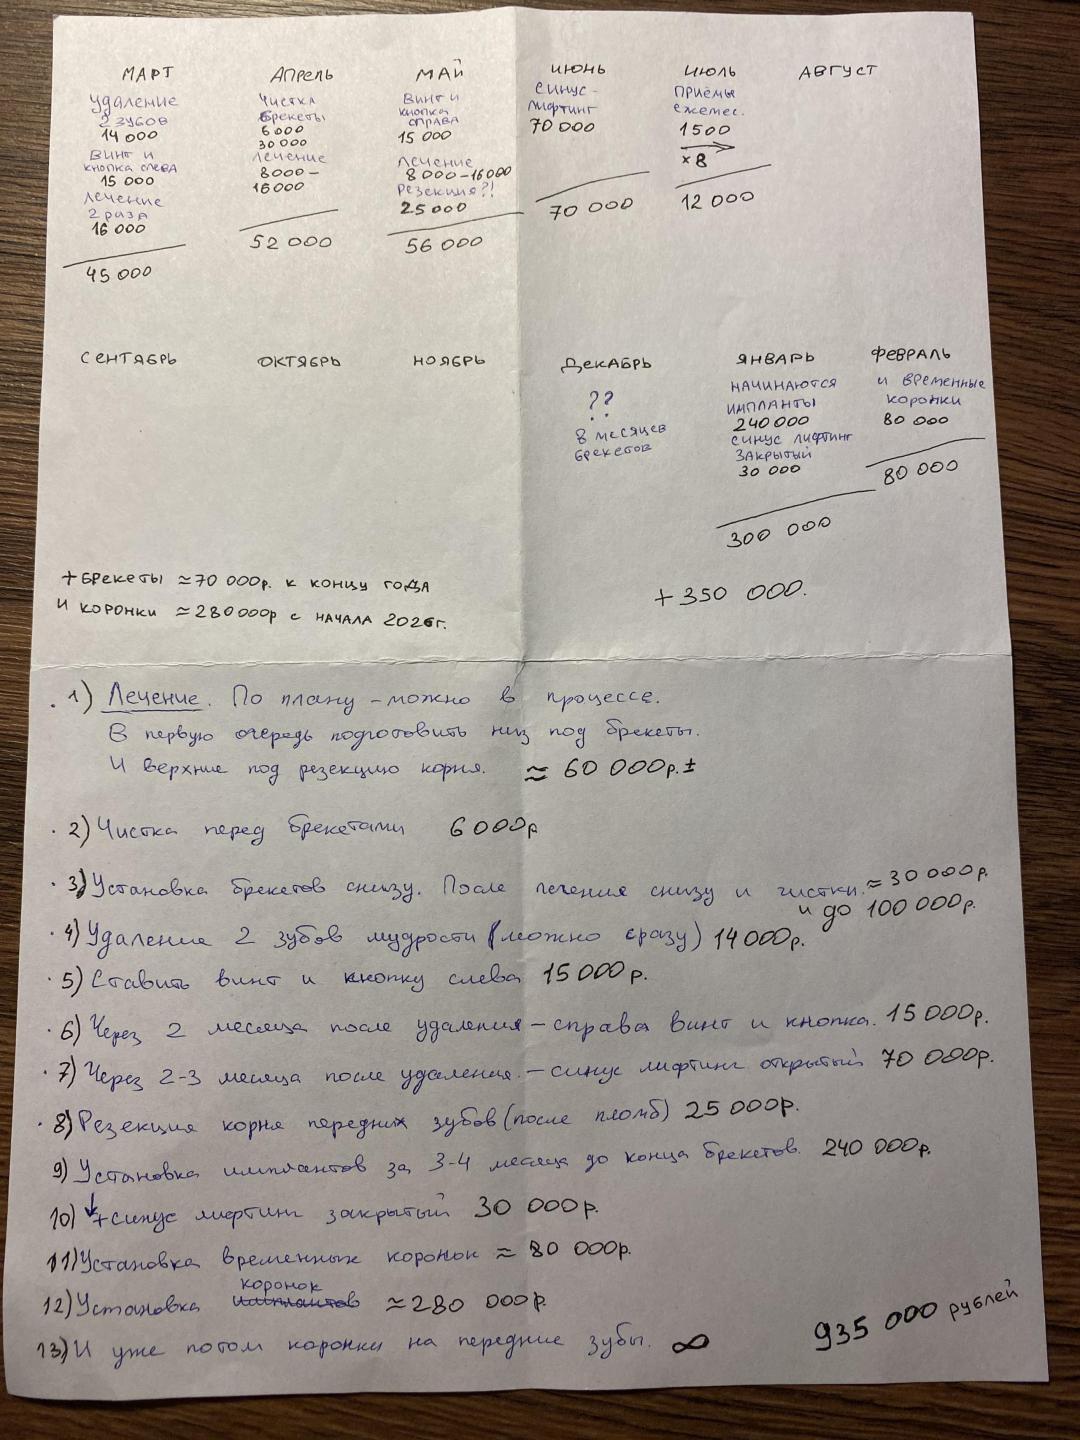 МАРТ
удаление
2 зубов
14 000
винт и
кнопка слева
15 000
лечение
2 раза
16 000
45 000
АПРЕЛЬ
чистка
брекеты
6000
30 000
лечение
8000–
16000
52 000
МАЙ
винт и
кнопка
справа
15 000
лечение
8 000–16000
резекция?!
25 000
56 000
ИЮНЬ
синус-
лифтинг
70 000
70 000
ИЮЛЬ
приёмы
ежемес.
1500
→
×8
12 000
АВГУСТ
СЕНТЯБРЬ
ОКТЯБРЬ
НОЯБРЬ
ДЕКАБРЬ
??
8 месяцев
брекетов
ЯНВАРЬ
начинаются
импланты
240 000
синус лифтинг
закрытый
30 000
300 000
ФЕВРАЛЬ
и временные
коронки
80 000
80 000
+ брекеты ≈70 000р. к концу года
и коронки ≈280000р с начала 2026г.
+350 000.
1) Лечение. По плану – можно в процессе.
В первую очередь подготовить низ под брекеты.
И верхние под резекцию корня. ≈ 60 000р.±
2) Чистка перед брекетами 6 000р
3) Установка брекетов снизу. После лечения снизу и чистки. ≈30 000р.
и до 100 000р.
4) Удаление 2 зубов мудрости (можно сразу) 14 000р.
5) Ставить винт и кнопку слева 15 000р.
6) Через 2 месяца после удаления – справа винт и кнопка. 15 000р.
7) Через 2-3 месяца после удаления. – синус лифтинг открытый 70 000р.
8) Резекция корня передних зубов (после пломб) 25 000р.
9) Установка имплантов за 3-4 месяца до конца брекетов. 240 000р.
10) ↓ + синус лифтинг закрытый 30 000р.
11) Установка временных коронок ≈ 80 000р.
12) Установка имплантов коронок ≈ 280 000р.
13) И уже потом коронки на передние зубы. ∞
935 000 рублей